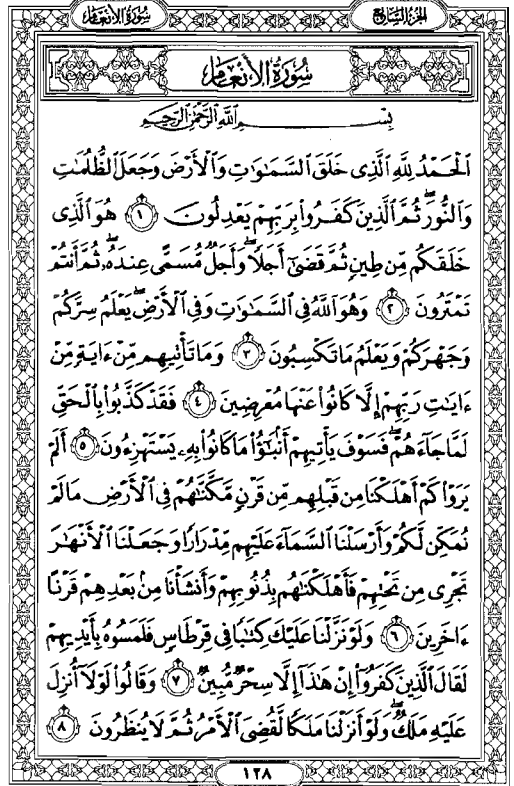 الجزء السابع
سورة الأنعام
سُورَةُ الأَنْعَامِ
بِسْمِ اللَّهِ الرَّحْمَٰنِ الرَّحِيمِ
الْحَمْدُ لِلَّهِ الَّذِي خَلَقَ السَّمَٰوَٰتِ وَالْأَرْضَ وَجَعَلَ الظُّلُمَٰتِ
وَالنُّورَ ۖ ثُمَّ الَّذِينَ كَفَرُوا بِرَبِّهِمْ يَعْدِلُونَ ١ هُوَ الَّذِي
خَلَقَكُم مِّن طِينٍ ثُمَّ قَضَىٰٓ أَجَلًا ۖ وَأَجَلٌ مُّسَمًّى عِندَهُۥ ۖ ثُمَّ أَنتُمْ
تَمْتَرُونَ ٢ وَهُوَ اللَّهُ فِي السَّمَٰوَٰتِ وَفِي الْأَرْضِ ۖ يَعْلَمُ سِرَّكُمْ
وَجَهْرَكُمْ وَيَعْلَمُ مَا تَكْسِبُونَ ٣ وَمَا تَأْتِيهِم مِّنْ ءَايَةٍ مِّنْ
ءَايَٰتِ رَبِّهِمْ إِلَّا كَانُوا عَنْهَا مُعْرِضِينَ ٤ فَقَدْ كَذَّبُوا بِالْحَقِّ
لَمَّا جَآءَهُمْ ۖ فَسَوْفَ يَأْتِيهِمْ أَنۢبَٰٓؤُا مَا كَانُوا بِهِۦ يَسْتَهْزِءُونَ ٥ أَلَمْ
يَرَوْا كَمْ أَهْلَكْنَا مِن قَبْلِهِم مِّن قَرْنٍ مَّكَّنَّٰهُمْ فِي الْأَرْضِ مَا لَمْ
نُمَكِّن لَّكُمْ وَأَرْسَلْنَا السَّمَآءَ عَلَيْهِم مِّدْرَارًا وَجَعَلْنَا الْأَنْهَٰرَ
تَجْرِي مِن تَحْتِهِمْ فَأَهْلَكْنَٰهُم بِذُنُوبِهِمْ وَأَنشَأْنَا مِنۢ بَعْدِهِمْ قَرْنًا
ءَاخَرِينَ ٦ وَلَوْ نَزَّلْنَا عَلَيْكَ كِتَٰبًا فِي قِرْطَاسٍ فَلَمَسُوهُ بِأَيْدِيهِمْ
لَقَالَ الَّذِينَ كَفَرُوٓا إِنْ هَٰذَآ إِلَّا سِحْرٌ مُّبِينٌ ٧ وَقَالُوا لَوْلَآ أُنزِلَ
عَلَيْهِ مَلَكٌ ۖ وَلَوْ أَنزَلْنَا مَلَكًا لَّقُضِيَ الْأَمْرُ ثُمَّ لَا يُنظَرُونَ ٨
١٢٨